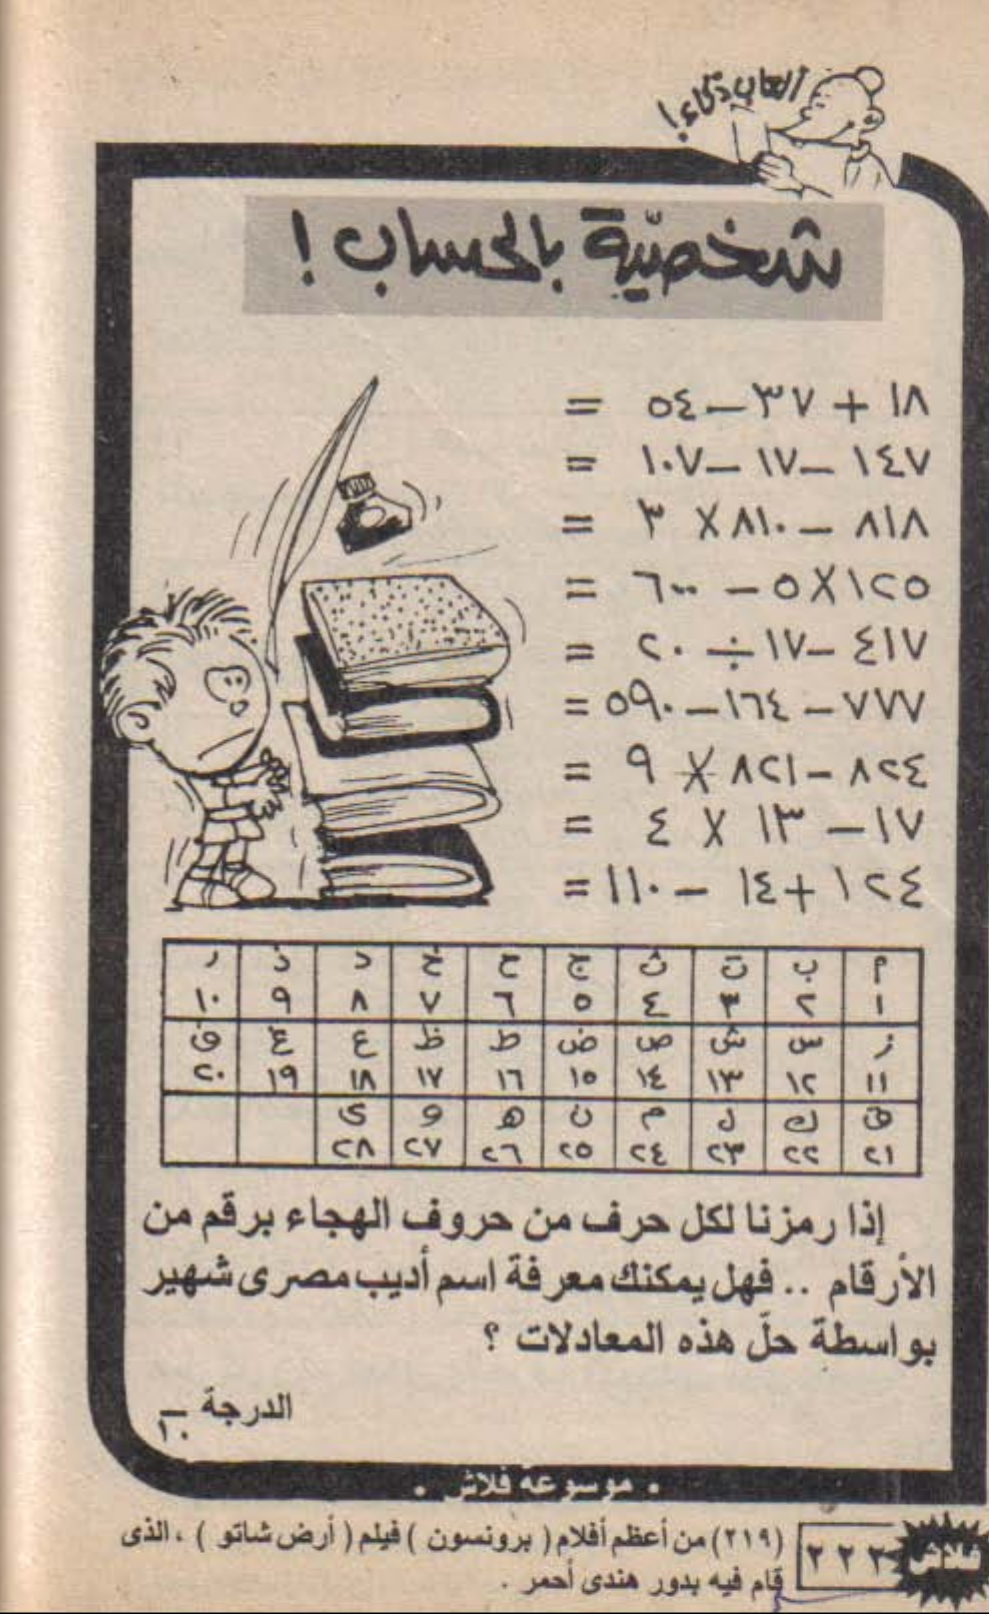 ألعاب ذكاء!
شخصيّة بالحساب !
١٨ + ٣٧ – ٥٤ =
١٤٧ – ١٧ – ١٠٧ =
٨١٨ – ٨١٠ X ٣ =
١٢٥ X ٥ – ٦٠٠ =
٤١٧ – ١٧ ÷ ٢٠ =
٧٧٧ – ١٦٤ – ٥٩٠ =
٨٢٤ – ٨٢١ X ٩ =
١٧ – ١٣ X ٤ =
١٢٤ + ١٤ – ١١٠ =
م ب ت ث ج ح خ د ذ ر
١ ٢ ٣ ٤ ٥ ٦ ٧ ٨ ٩ ١٠
ز س ش ص ض ط ظ ع غ ف
١١ ١٢ ١٣ ١٤ ١٥ ١٦ ١٧ ١٨ ١٩ ٢٠
ق ك ل م ن ه و ى
٢١ ٢٢ ٢٣ ٢٤ ٢٥ ٢٦ ٢٧ ٢٨
إذا رمزنا لكل حرف من حروف الهجاء برقم من
الأرقام .. فهل يمكنك معرفة اسم أديب مصرى شهير
بواسطة حلّ هذه المعادلات ؟
الدرجة —
١٠
• موسوعة فلاش •
فلاش ٢٢٢ (٢١٩) من أعظم أفلام ( برونسون ) فيلم ( أرض شاتو ) ، الذى
قام فيه بدور هندى أحمر .